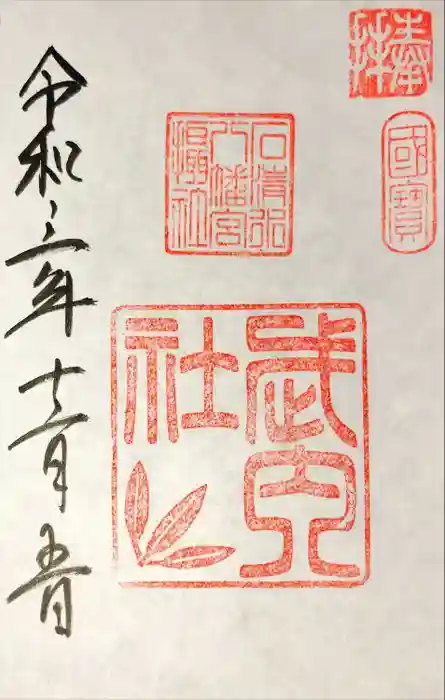 奉拝
國寶
石清水
八幡宮
攝社
武内
社
令和三年十二月五日